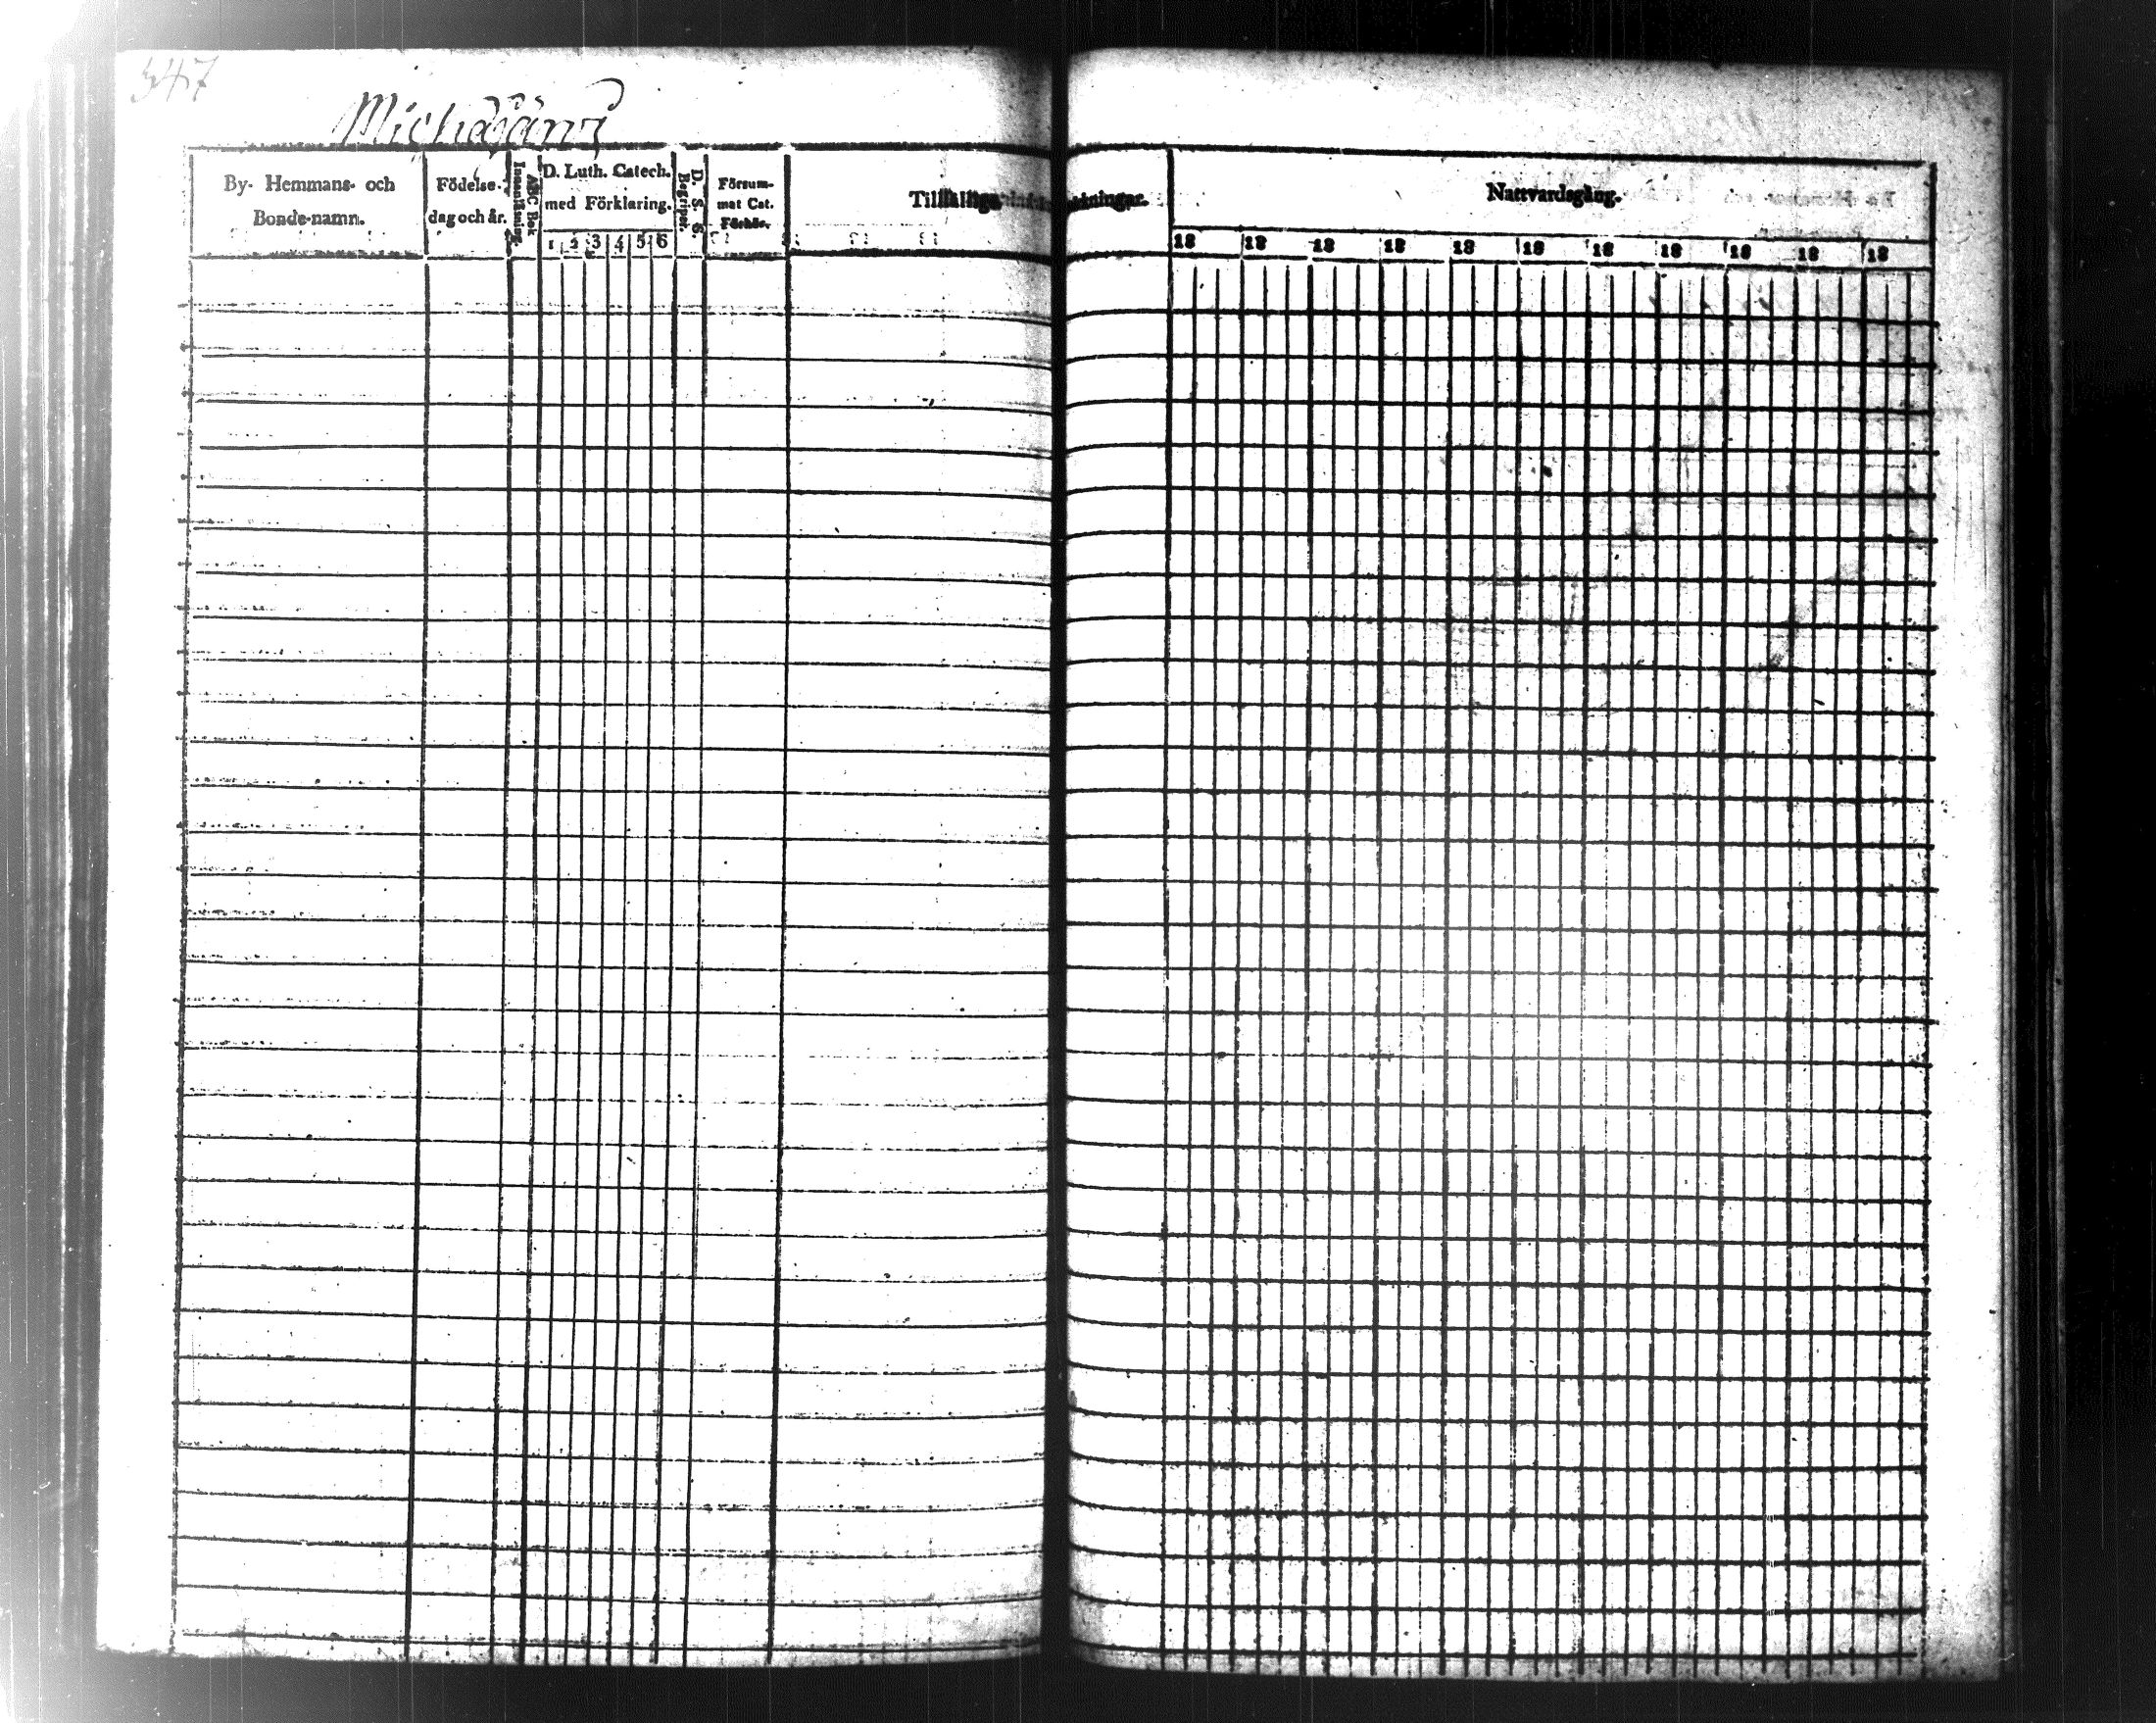 347
Michajärvi
By- Hemmans- och
Bonde-namn.
Födelse-
dag och år.
ABC Bok
D. Luth. Catech.
med Förklaring.
1 2 3 4 5 6
D. S. S.
Begriper.
Försum-
mat Cat.
Förhör.
Tillfälliga
Nattvardsgång.
18 18 18 18 18 18 18 18 18 18 18